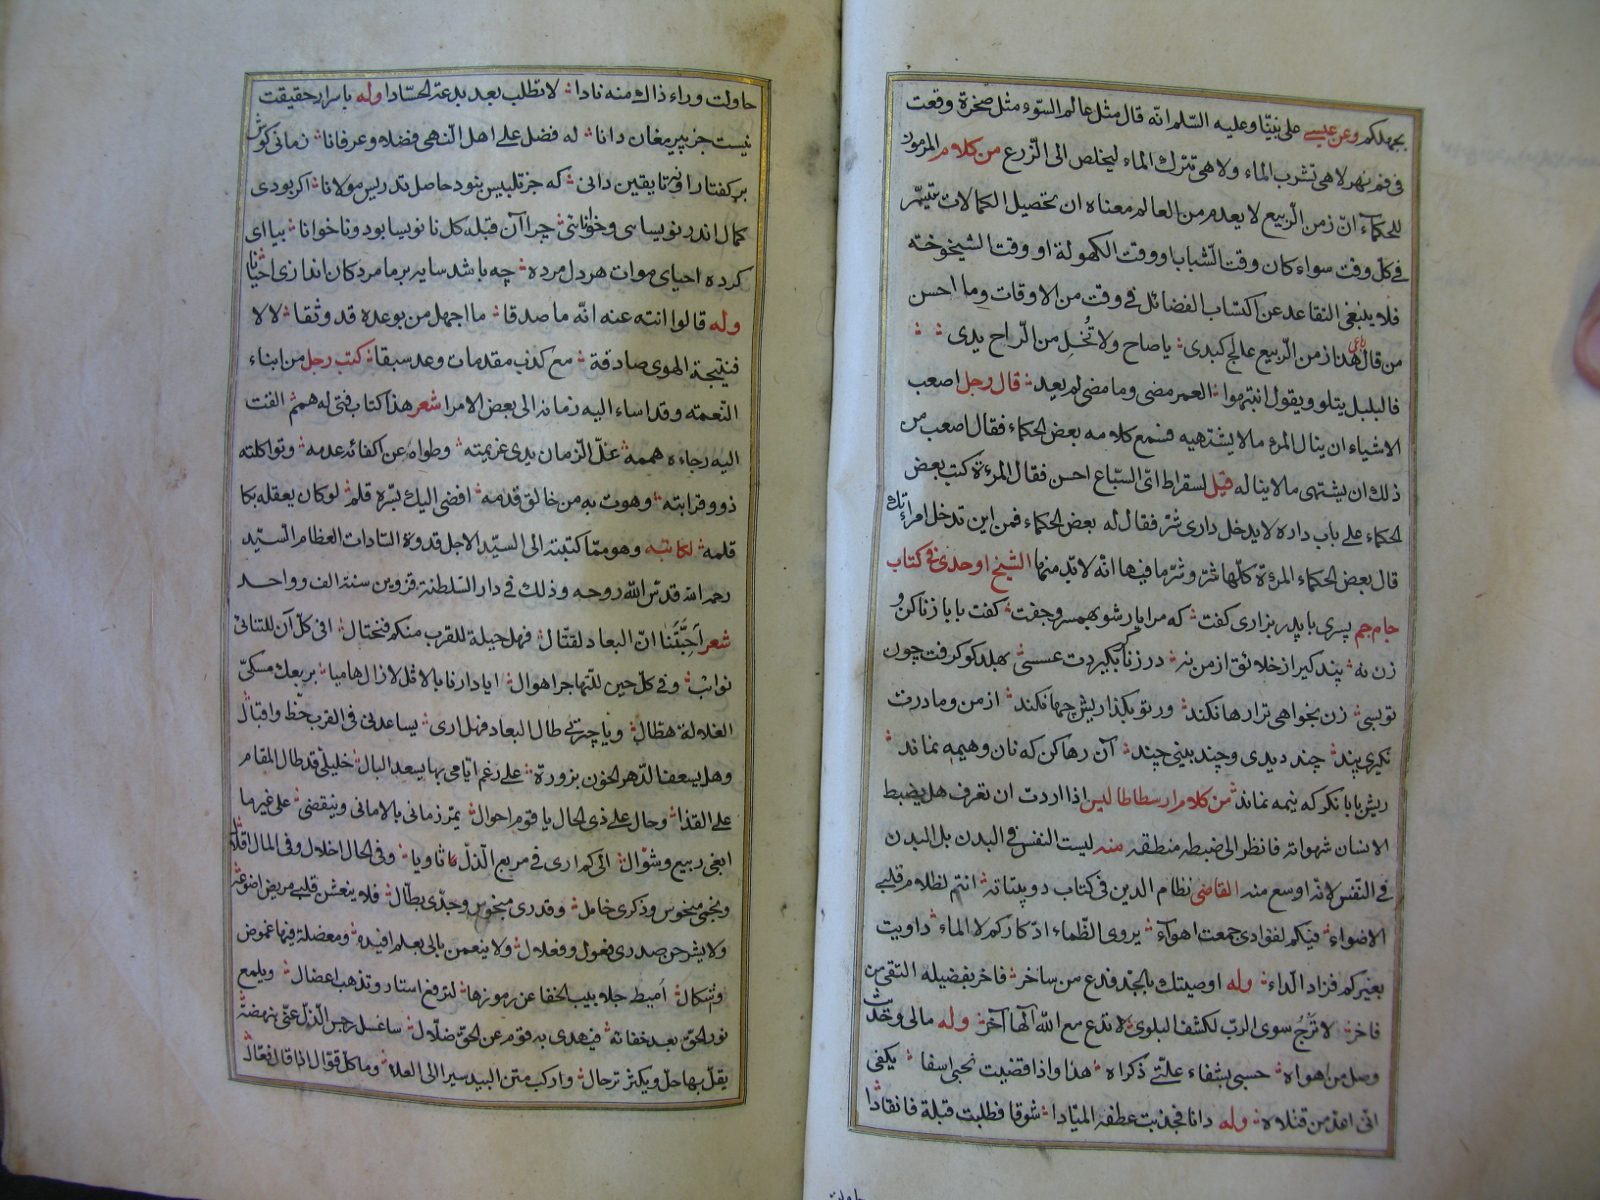 بجهلكم وعن عيسى على نبيّنا وعليه السّلم انّه قال مثل عالم السّوء مثل صخرة وقعت
فى فم نهر لا هى تشرب الماء ولا هى تترك الماء ليخلص الى الزّرع من كلام المرموز
للحكماء انّ زمن الرّبيع لا يعدم من العالم معناه ان تحصيل الكمالات متيسّر
فى كلّ وقت سواء كان وقت الشّباب او وقت الكهولة او وقت الشيخوخته
فلا ينبغى التقاعد عن اكتساب الفضائل فى وقت من الاوقات وما احسن
من قال هذا زمن الرّبيع عالج كبدى يا صاح ولا تُخلِ من الرّاح يدى
فالبلبل يتلو ويقول انتبهوا العمر مضى وما مضى لم يعد قال رجل اصعب
الاشياء ان ينال المرء ما لا يشتهيه فسمع كلامه بعض الحكماء فقال اصعب من
ذلك ان يشتهى ما لا يناله قيل لسقراط اىّ السّباع احسن فقال المرءة كتب بعض
الحكماء على باب داره لا يدخل دارى شرّ فقال له بعض الحكماء فمن اين تدخل امراتك
قال بعض الحكماء المرءة كلّها شرّ وشرّ ما فيها انّه لا بدّ منها الشيخ اوحدى فى كتاب
جام جم پسرى با پدر بزارى كفت كه مرا يار شو بهمسر وجفت كفت بابا زنا كن و
زن نه پند كير از خلائق از من نه در زنا كر بگيردت عسسى بهلد كو كرفت چون
تو بسى زن بخواهى ترا رها نكند ور تو بگذاريش چها نكند از من و مادرت
نكيرى پند چند ديدى وچند بينى چند آن رها كن كه نان وهيمه نماند
ريش بابا نكر كه نيمه نماند من كلام ارسطاطاليس اذا اردت ان تعرف هل يضبط
الانسان شهواته فانظر الى ضبطه منطقه منه ليست النفس فى البدن بل البدن
فى النّفس لانّه اوسع منه القاضى نظام الدين فى كتاب دوبيتاته انتم لظلام قلبى
الاضواء فيكم لفؤادى جمعت اهواء يروى الظّماء اذكاركم لا الماء داويت
بغيركم فزاد الداء وله اوصيتك بالجدّ فدع من ساخر فاخر بفضيله التقى من
فاخر لا ترجُ سوى الربّ لكشف البلوى لا تدع مع الله الها آخر وله مالى وحديث
وصل من اهواه حسبى بشفاء علّتى ذكراه هذا واذا قضيت نحبى اسفا يكفى
انى اعدّ من قتلاه وله دانا فجذبت عطفه الميّادا شوقا فطلبت قبلة فانقادا
حاولت وراء ذاك منه نادا لا تطلب بعد بدعة الحسّادا وله باسرار حقيقت
نيست جز پير مغان دانا له فضل على اهل النّهى فضلا وعرفانا زمانى كوش
بر كفتار او نه تا يقين دانى كه جز تلبيس بنود حاصل تدريس مولانا اكر بودى
كمال اندر نويسائى وخوانائى چرا آن قبله كل نا نويسا بود ونا خوانا بيا اى
كرده احياى موات هر دل مرده چه باشد سايه بر ما مردكان اندازى احيانا
وله قالوا انته عنه انّه ما صدقا ما اجهل من بوعده قد وثقا لا لا
فنتيجة الهوى صادقة مع كذب مقدمات وعد سبقا كتب رجل من ابناء
النّعمته وقد اساء اليه زمانه الى بعض الامرا شعر هذا كتاب فتى له همم القت
اليه رجاءه هممه غلّ الزّمان يدى عزيمته وطواه عن اكفائه عدمه وتواكلته
ذوو قرابته وهوت به من خالق قدمه افضى اليك بسّره قلم لو كان يعقله بكا
قلمه لكاتبه وهو ممّا كتبته الى السيّد الاجل قدوة السّادات العظام السّيد
رحمه الله قدّس الله روحه وذلك فى دار السّلطنة قزوين سنة الف و واحد
شعر اَحِبَّتَنا انّ البعاد لقتّال فهل حيلة للقرب منكم فنحتال افى كلّ آن للتنائى
نوائب وفى كلّ حين للتّهاجر اهوال ايا دارنا بالاثل لا زال هاميا بربعك مسكىّ
الغلالة هطّال ويا جيرتى طال البعاد فهل ارى يساعدنى فى القرب حظّ واقبال
وهل يسعف الدّهر الخؤن بزورة على رغم ايّامى بها يسعد البال خليلىّ قد طال المقام
على القذا وحال على ذى الحال يا قوم احوال يمرّ زمانى بالامانى وينقضى على غير ما
ابغى ربيع وشوّال الى كم ارى فى مربع الذّلّ ثاويا وفى الحال اخلال وفى المال اقلال
ونجمى منحوس وذكرى خامل وقدرى مبخوس وجدّى بطّال فلا ينعش قلبى مريض اضوعه
ولا يشرحن صدرى فعول وفعلال ولا ينعمن بالى بعلم افيده ومعضلة فيها غموض
وشكال اُميط جلابيب الخفا عن رموزها لترفع استار وتذهب اعضال ويلمع
نور الحقّ بعد خفائه فيهدى به قوم عن الحقّ ضلّال ساغسل رجس الذّلّ عنّى بنهضة
يقلّ بها حلّ ويكثر ترحال واركب متن البيد سيرا الى العلا وما كلّ قوّال اذا قال فعّال